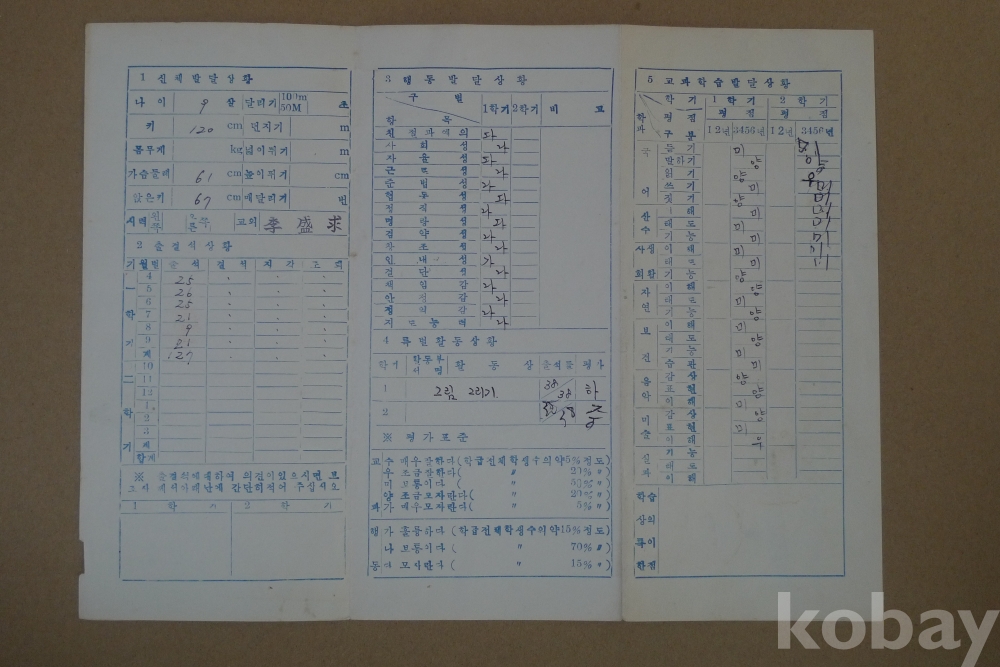 1 신체발달상황
나이 9 살 달리기 100m 50M 초
키 120 cm 던지기 m
몸무게 kg 넓이뛰기 m
가슴둘레 61 cm 높이뛰기 cm
앉은키 67 cm 매달리기 번
시력 교외 李盛求
2 출결석상황
기 월별 출석 결석 지각 조퇴
一 4 25
5 26
6 25
학 7 21
8 9
기 9 21
계 127
二 10
11
12
학 1
2
3
기 계
합계
※ 출결석에대하여 의견이있으시면 보
고사에서아래난에 간단히적어 주십시오
1 학 기 2 학 기
3 행동발달상황
구 별 1학기 2학기 비 고
항 목
친절과예의 다
사회성 나
자율성 다
근로성 나
준법성 나
협동성 다
정직성 나
명랑성 다
절약성 나
자조성 나
인내성 가
결단성 나
책임감 나
안정감 나
정직감 나
지도능력 나
4 특별활동상황
학년 활 동 상 출석률 평가
1 그림 그리기 38 38 하
2
※ 평가표준
교 수 매우잘한다 (학급전체학생수의약5%정도)
우 조금잘한다 ( 〃 20% 〃 )
미 보통이다 ( 〃 50% 〃 )
양 조금모자란다 ( 〃 20% 〃 )
과 가 매우모자란다 ( 〃 5% 〃 )
행 가 훌륭하다 (학급전체학생수의약15%정도)
나 보통이다 ( 〃 70% 〃 )
동 다 모자란다 ( 〃 15% 〃 )
5 교과학습발달상황
학 기 1 학 기 2 학 기
평 점 평 점
학과 평점 구분 12년 3456년 12년 3456년
국 듣기 미
말하기 양
읽기 양
어 쓰기 미
짓기 양
산 이해 미
태도 미
수 기능 미
사생 이해 미
태도 미
회활 기능 양
자 이해 양
태도 미
연 기능 양
보 이해 미
태도 양
기능 미
건 습관 미
음 감상 양
표현 양
악 이해 미
미 감상 양
표현 미
술 이해 우
실 기능
태도
과 이해
학습
상의
특이
한점
kobay